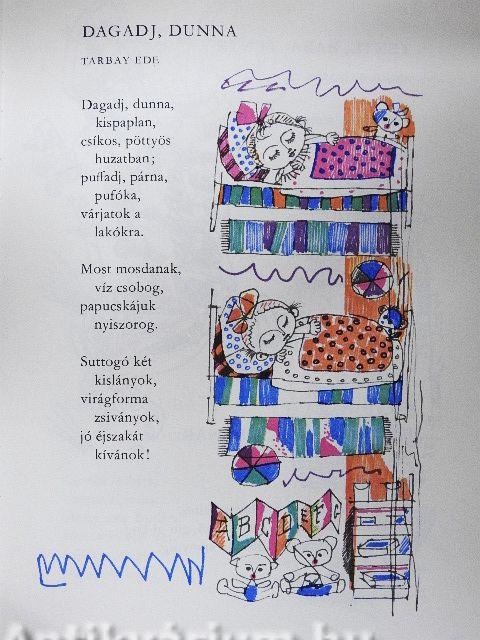 DAGADJ, DUNNA
TARBAY EDE
Dagadj, dunna,
kispaplan,
csíkos, pöttyös
huzatban;
puffadj, párna,
pufóka,
várjatok a
lakókra.
Most mosdanak,
víz csobog,
papucskájuk
nyiszorog.
Suttogó két
kislányok,
virágforma
zsiványok,
jó éjszakát
kívánok!
ABCDEFG